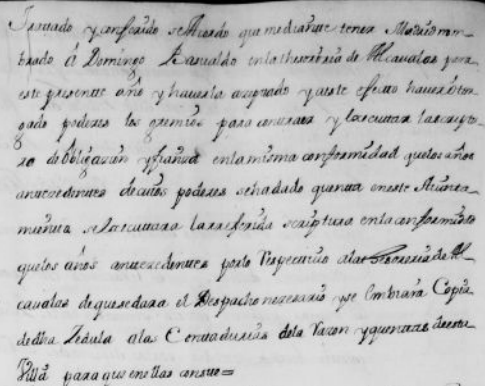 Tratado y conferido se Acordo que mediante tener Madrid nom-
brado â Domingo Basualdo en la thesoreria de Alcavalas para
este presente año y haverla aceptado y a este efecto haver otor-
gado poderes los gremios para contratar y executar la escriptu-
ra de obligazion y fianza en la misma conformidad que los años
antecedentes de cuios poderes se ha dado quenta en este Aiunta-
miento se executara la referida scriptura en la conformidad
que los años antecedentes por lo respectivo a la thesoreria de Al-
cavalas de que se dara el Despacho nezesario y se embiara Copia
de dha Zedula a las Contadurias de la Razon y quentas de esta
Villa para que en ellas conste=